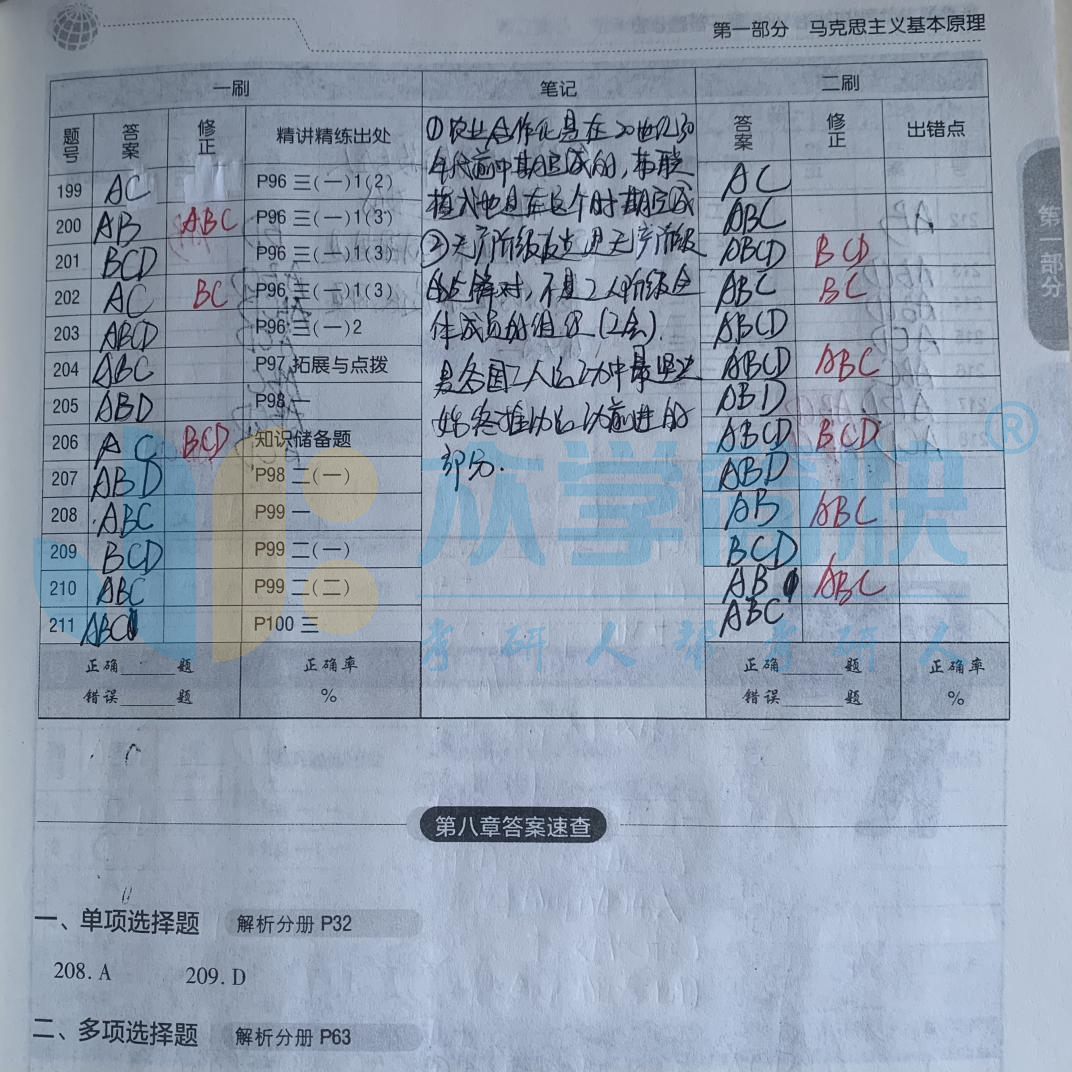 第一部分 马克思主义基本原理
一刷 笔记 二刷
题号 答案 修正 精讲精练出处 答案 修正 出错点
199 AC P96 三(一)1(2) AC
200 AB ABC P96 三(一)1(3) ABC
201 BCD P96 三(一)1(3) ABCD BCD
202 AC BC P96 三(一)1(3) ABC BC
203 ABCD P96 三(一)2 ABCD
204 ABC P97 拓展与点拨 ABCD ABC
205 ABD P98 一 ABD
206 AC BCD 知识储备题 ABCD BCD
207 ABD P98 二(一) ABD
208 ABC P99 一 AB ABC
209 BCD P99 二(一) BCD
210 ABC P99 二(二) AB ABC
211 ABC P100 三 ABC
①农业合作化是在20世纪30
年代前中期完成的,苏联
模式也是在这个时期完成
②无产阶级政党是无产阶级
的先锋队,不是工人阶级全
体成员的组织(工会).
是各国工人运动中最坚决
始终推动运动前进的
部分.
正确______题 正确率 正确______题 正确率
错误______题 % 错误______题 %
第一部分
众学愉快®
考研人帮考研人
第八章答案速查
一、单项选择题 解析分册 P32
208. A 209. D
二、多项选择题 解析分册 P63